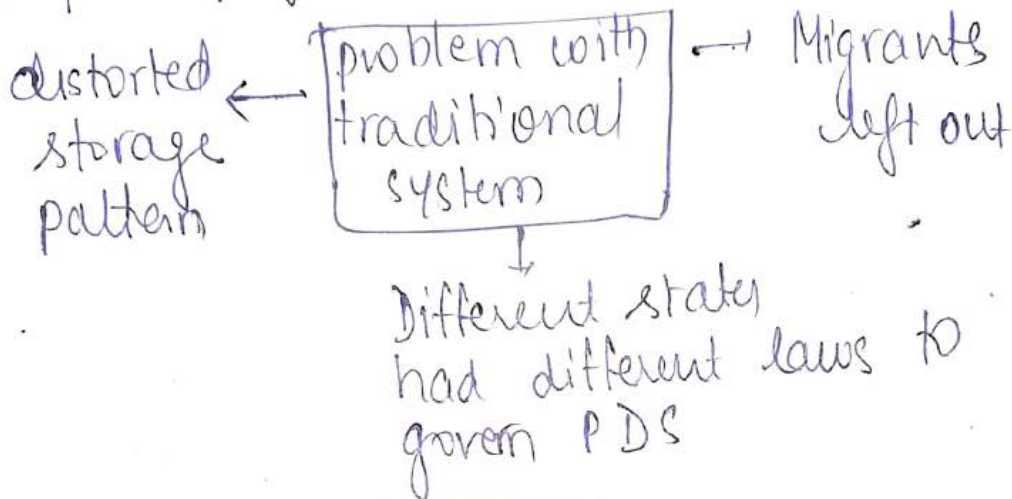 distorted
storage
pattern
problem with
traditional
system
Migrants
left out
Different states
had different laws to
govern PDS